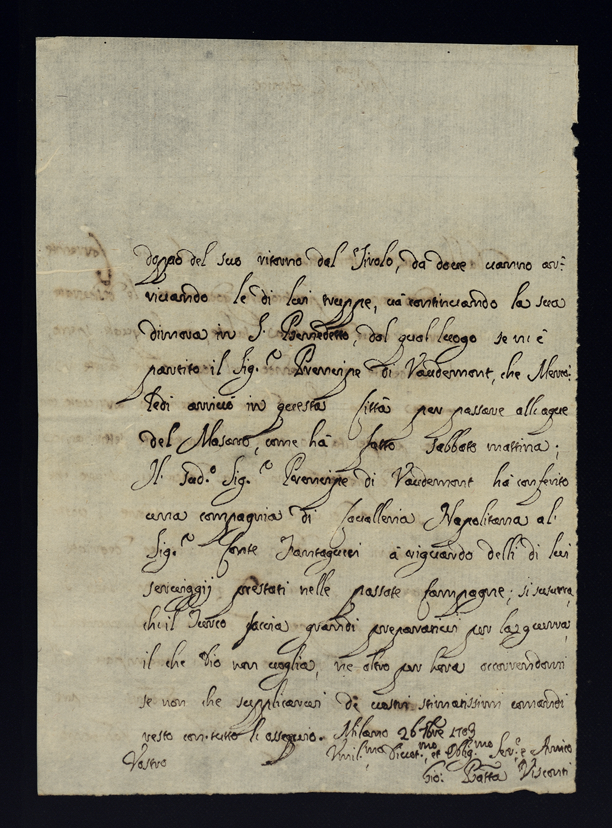 doppo del suo ritorno dal Tirolo, da dove vanno ar-
rivando le di lui truppe, và continuando la sua
dimora in S. Benedetto, dal qual luogo se ne è
partito il Sig.r Prencipe di Vaudemont, che Merco-
ledi arrivò in questa Città per passare all'acque
del Masano, come hà fatto Sabbato mattina;
Il Sud.o Sig.r Prencipe di Vaudemont hà conferito
una compagnia di Cavalleria Napolitana al
Sig.r Conte Fantaguzzi à riguardo delli di lui
serviggij prestati nelle passate Campagne; si susurra,
ch'il Turco faccia grandi preparativi per la guerra,
il che Dio non voglia, ne altro per hora occorrendomi
se non che supplicarvi de vostri stimatissimi comandi
resto con tutto l'ossequio. Milano 26 7bre 1703
Vostro Umil.mo Divot.mo et Obblig.mo Ser.e e Amico
Gio: Batta Visconti